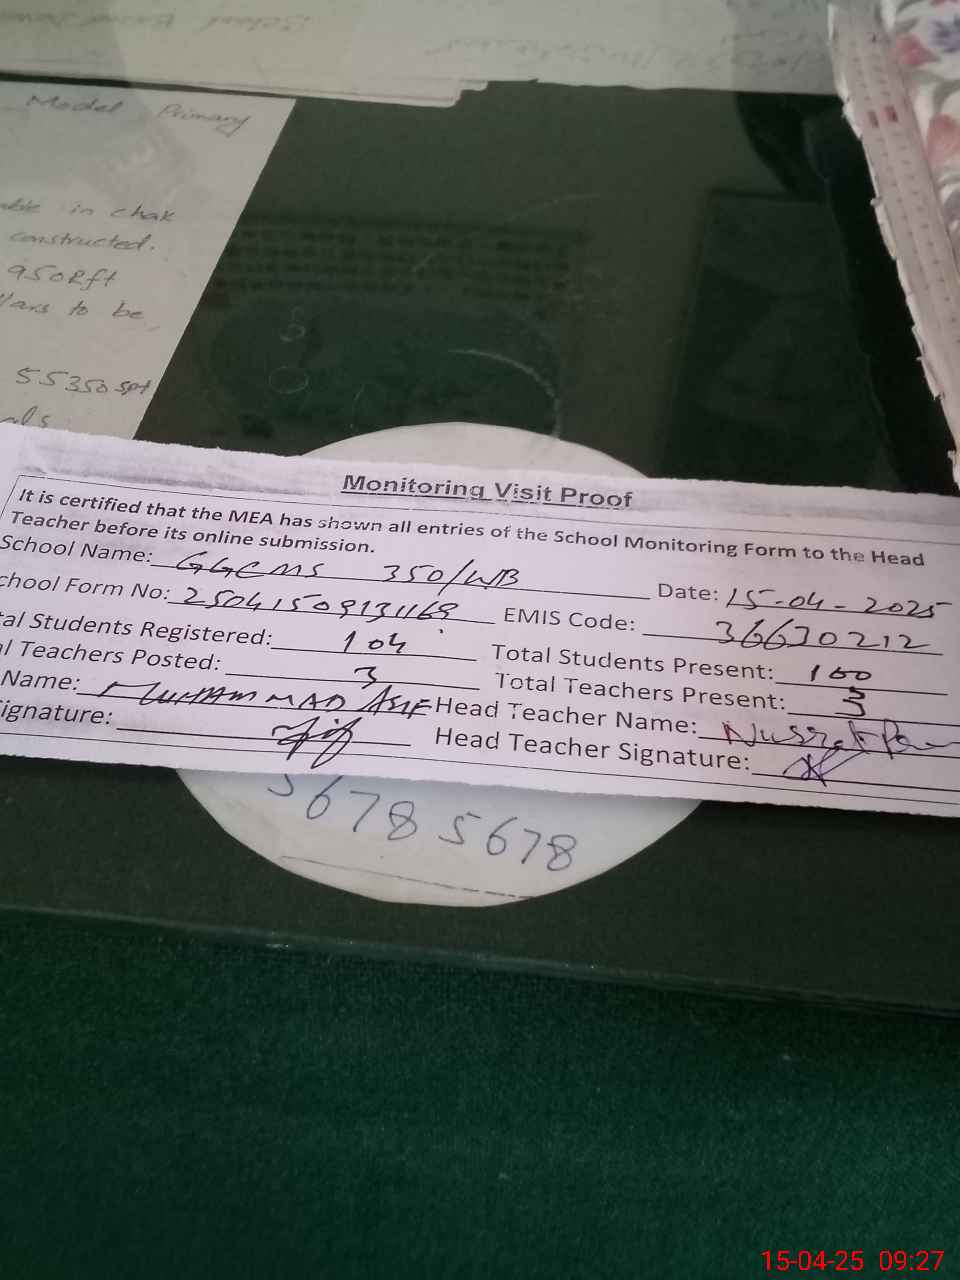 Model Primary
able in chak
constructed.
950Rft
to be
55350 sft
Monitoring Visit Proof
It is certified that the MEA has shown all entries of the School Monitoring Form to the Head
Teacher before its online submission.
School Name: GGCMS 350/WB Date: 15-04-2025
chool Form No: 25041509131169 EMIS Code: 36630212
tal Students Registered: 104 Total Students Present: 100
l Teachers Posted: 3 Total Teachers Present: 3
Name: MUHAMMAD ASIF Head Teacher Name: Nusrat
ignature: Head Teacher Signature:
5678 5678
15-04-25 09:27